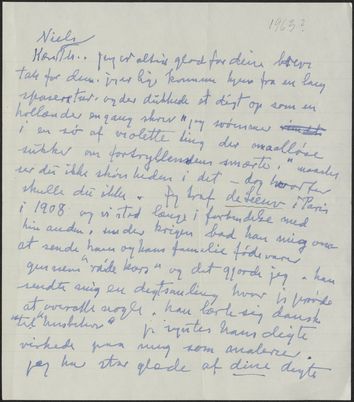 1963?
Niels
Kærth.. jeg er altid glad for dine breve
tak for dem. jeg er lige kommen hjem fra en lang
spasertur. og der dukkede et digt op som en
hollænder engang skrev "jeg svømmer
i en sø af violette ling der maalløse
sukker om fortryllendens smerte." maaske
ser du ikke skønheden i det – dog hvorfor
skulle du ikke. Jeg traf de Leeuw i Paris
i 1908 og vi stod længe i forbindelse med
hinanden. under krigen bad han mig om
at sende ham og hans familie fødevarer
gennem "røde kors" og det gjorde jeg. han
sendte mig en digtsamling hvor jeg prøvede
at oversætte nogle. han lærte sig dansk
til "husbehov" jeg syntes hans digte
virkede paa mig som malerier.
jeg har stor glæde af dine digte